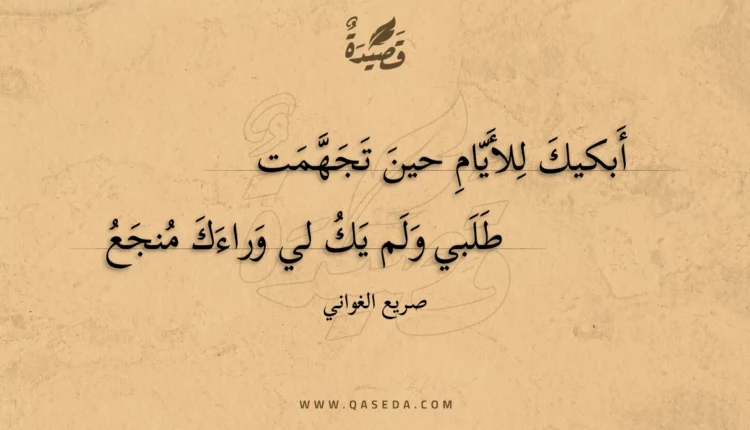 قَصِيْدَةٌ
أَبكيكَ لِلأَيّامِ حينَ تَجَهَّمَت
طَلَبي وَلَم يَكُ لي وَراءَكَ مُنجَعُ
صريع الغواني
WWW.QASEDA.COM